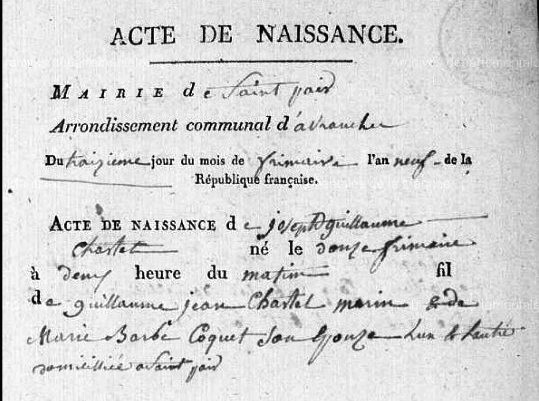 ACTE DE NAISSANCE.
MAIRIE de Saint pair
Arrondissement communal d'avranches
Du traizieme jour du mois de frimaire l'an neuf de la
République française.
ACTE DE NAISSANCE de joseph guillaume
Chartel né le douze frimaire
à deux heure du matin fil
de guillaume jean Chartel marin & de
Marie Barbe Coquet son Epouze Lun & Lautre
domicilliée a Saint pair